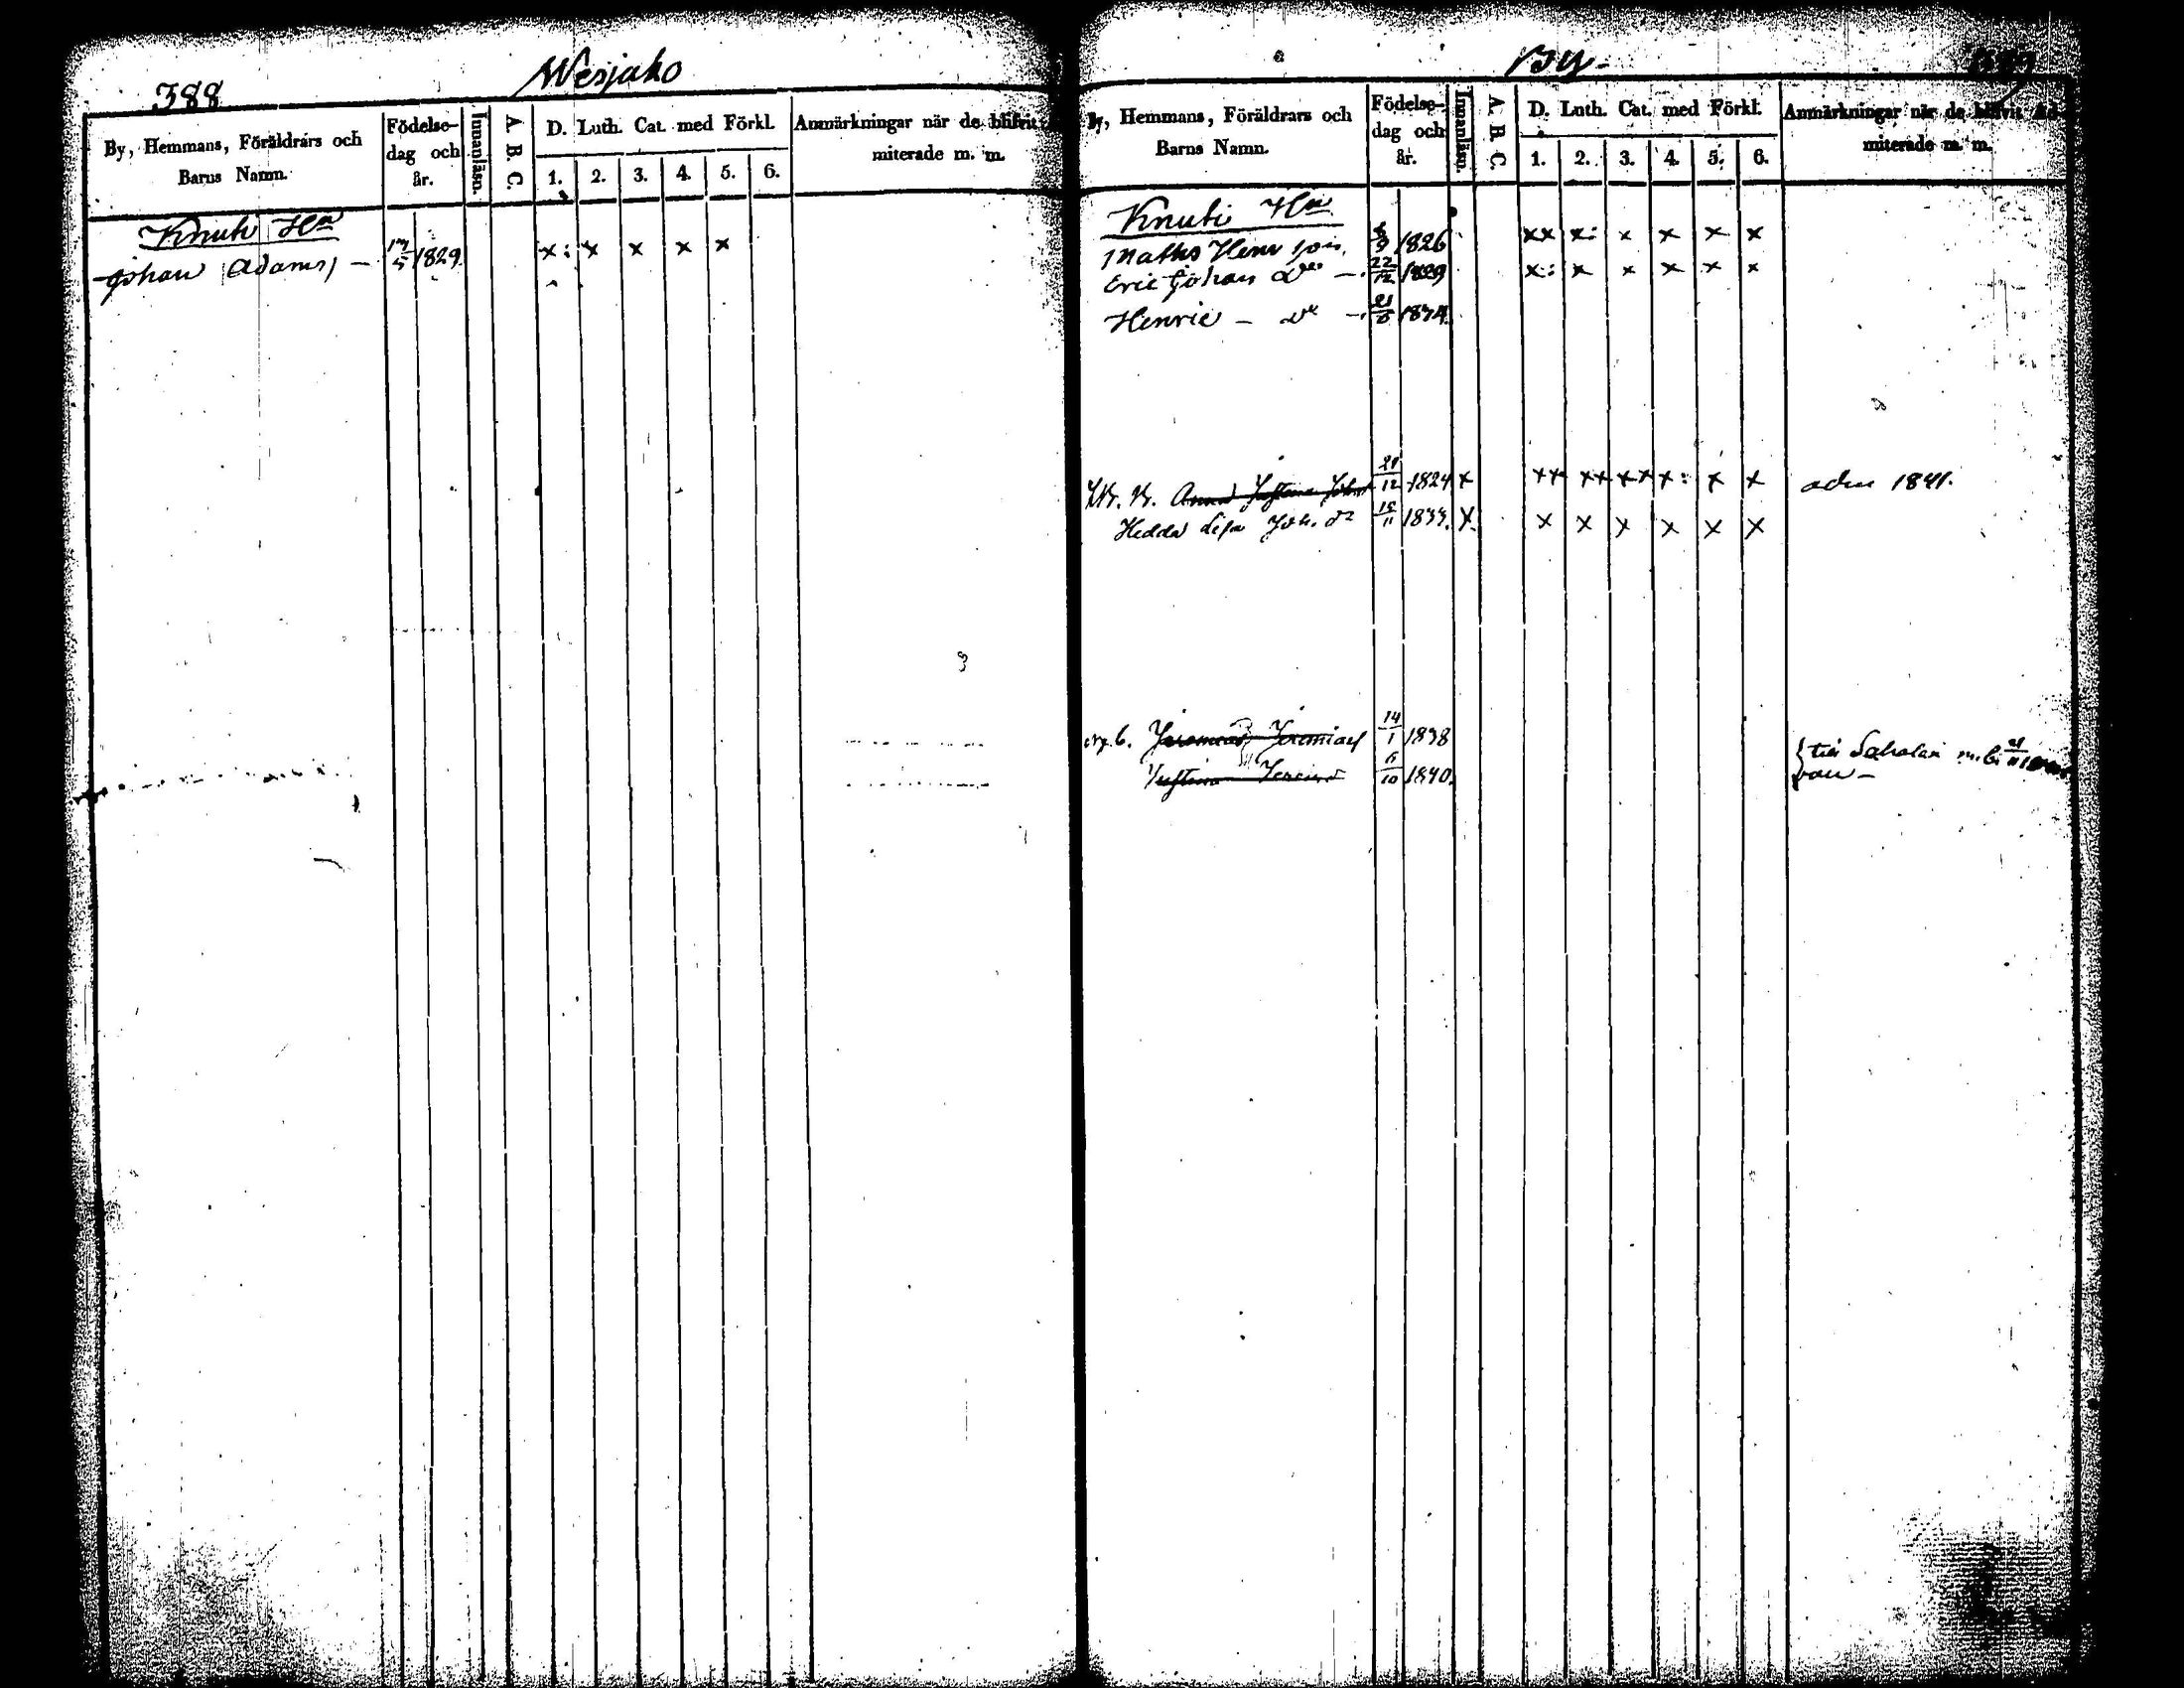 388
Wesjako
By, Hemmans, Föräldrars och Barns Namn.
Födelse-dag och år.
Innanläsn.
A. B. C.
D. Luth. Cat. med Förkl.
1. 2. 3. 4. 5. 6.
Anmärkningar när de blifvit
miterade m. m.
Knuti Hn
Johan Adams 5 1829 x: x x x x
By
By, Hemmans, Föräldrars och Barns Namn.
Födelse-dag och år.
Innanläsn.
A. B. C.
D. Luth. Cat. med Förkl.
1. 2. 3. 4. 5. 6.
Anmärkningar när de blifvit Ad-
miterade m. m.
Knuti Hn
Maths Henr son 9 1826 xx x: x x x x
Eric Johan Do – 22/12 1829 x: x x x x x
Henric – Do – 1834
Anna Justina 21/12 1824 x xx xx xx x: x x adm 1841.
Hedda Lisa Joh. dr 11 1833. x x x x x x x
Jeremias Jeremias 14/1 1838
Justina 6/10 1840.